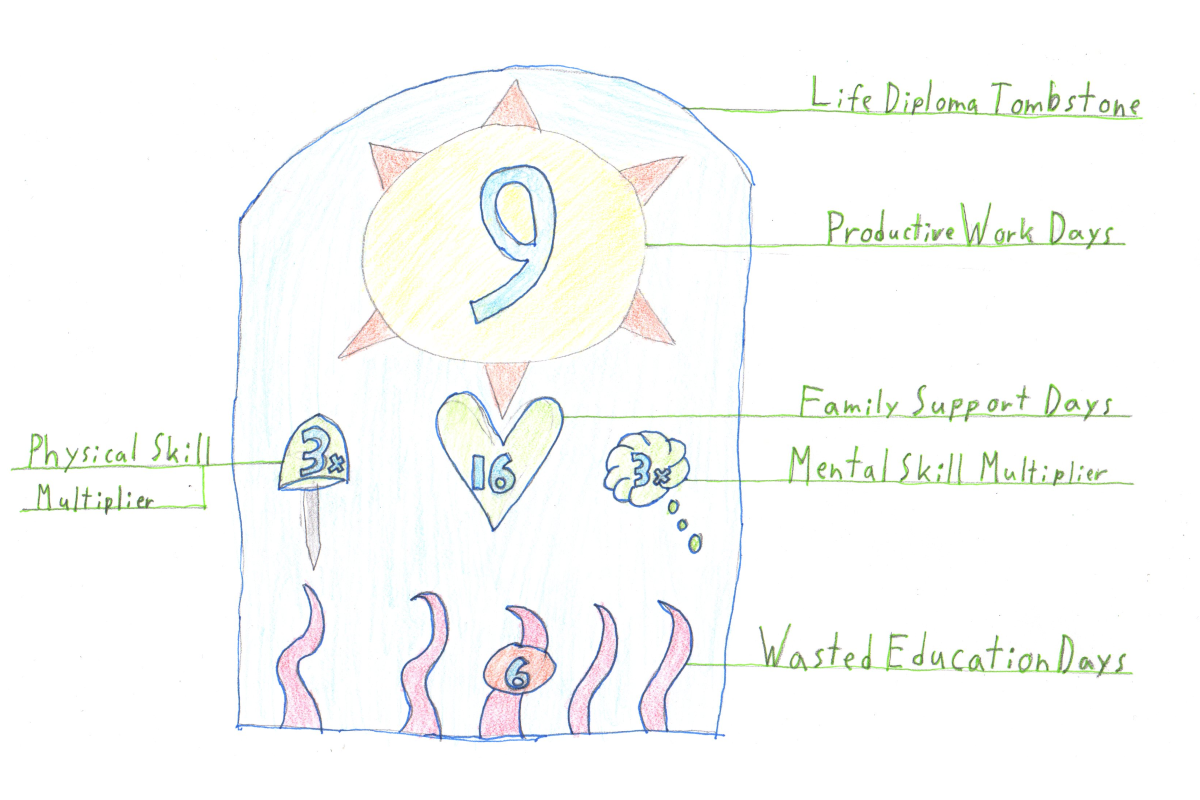 Life Diploma Tombstone
9
Productive Work Days
Family Support Days
Physical Skill
Multiplier
3x
16
3x
Mental Skill Multiplier
6
Wasted Education Days